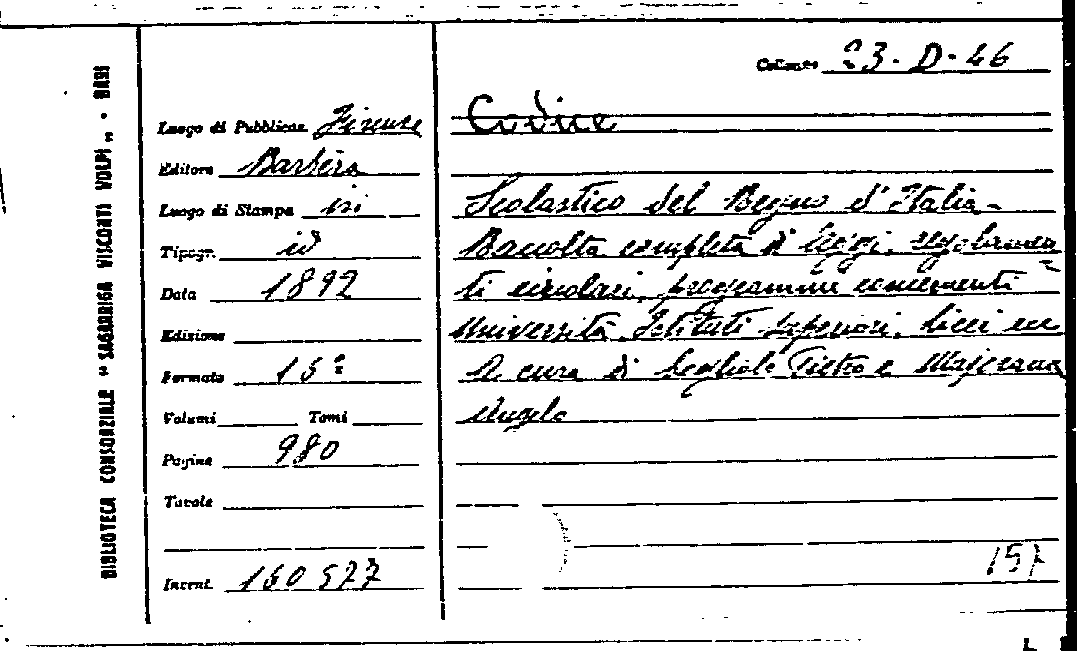 BIBLIOTECA CONSORZIALE "SAGARRIGA VISCONTI VOLPI" - BARI
Collocaz. 23-D-46
Luogo di Pubblicaz. Firenze
Editore Barbèra
Luogo di Stampa ivi
Tipogr. id
Data 1892
Edizione
Formato 16°
Volumi Tomi
Pagine 980
Tavole
Invent. 160577
Codice
Scolastico del Regno d'Italia -
Raccolta completa di leggi, regolamen
ti circolari, programmi concernenti
Università, Istituti superiori, licei ecc
A cura di Pietro e Majorana
Angelo
157